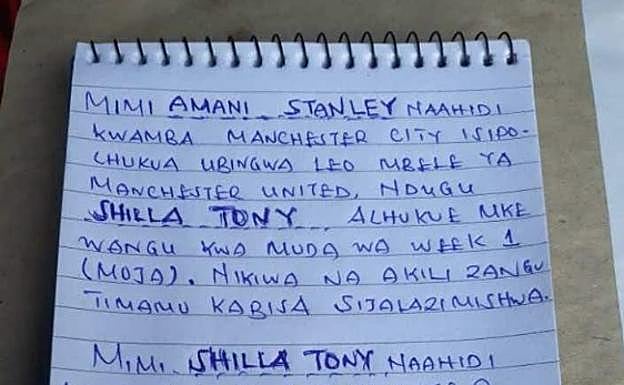 MIMI AMANI STANLEY NAAHIDI
KWAMBA MANCHESTER CITY ISIPO-
CHUKUA UBINGWA LEO MBELE YA
MANCHESTER UNITED, NDUGU
SHILLA TONY ALHUKUE MKE
WANGU KWA MUDA WA WEEK 1
(MOJA). NIKIWA NA AKILI ZANGU
TIMAMU KABISA SIJALAZIMISHWA.
MIMI SHILLA TONY NAAHIDI